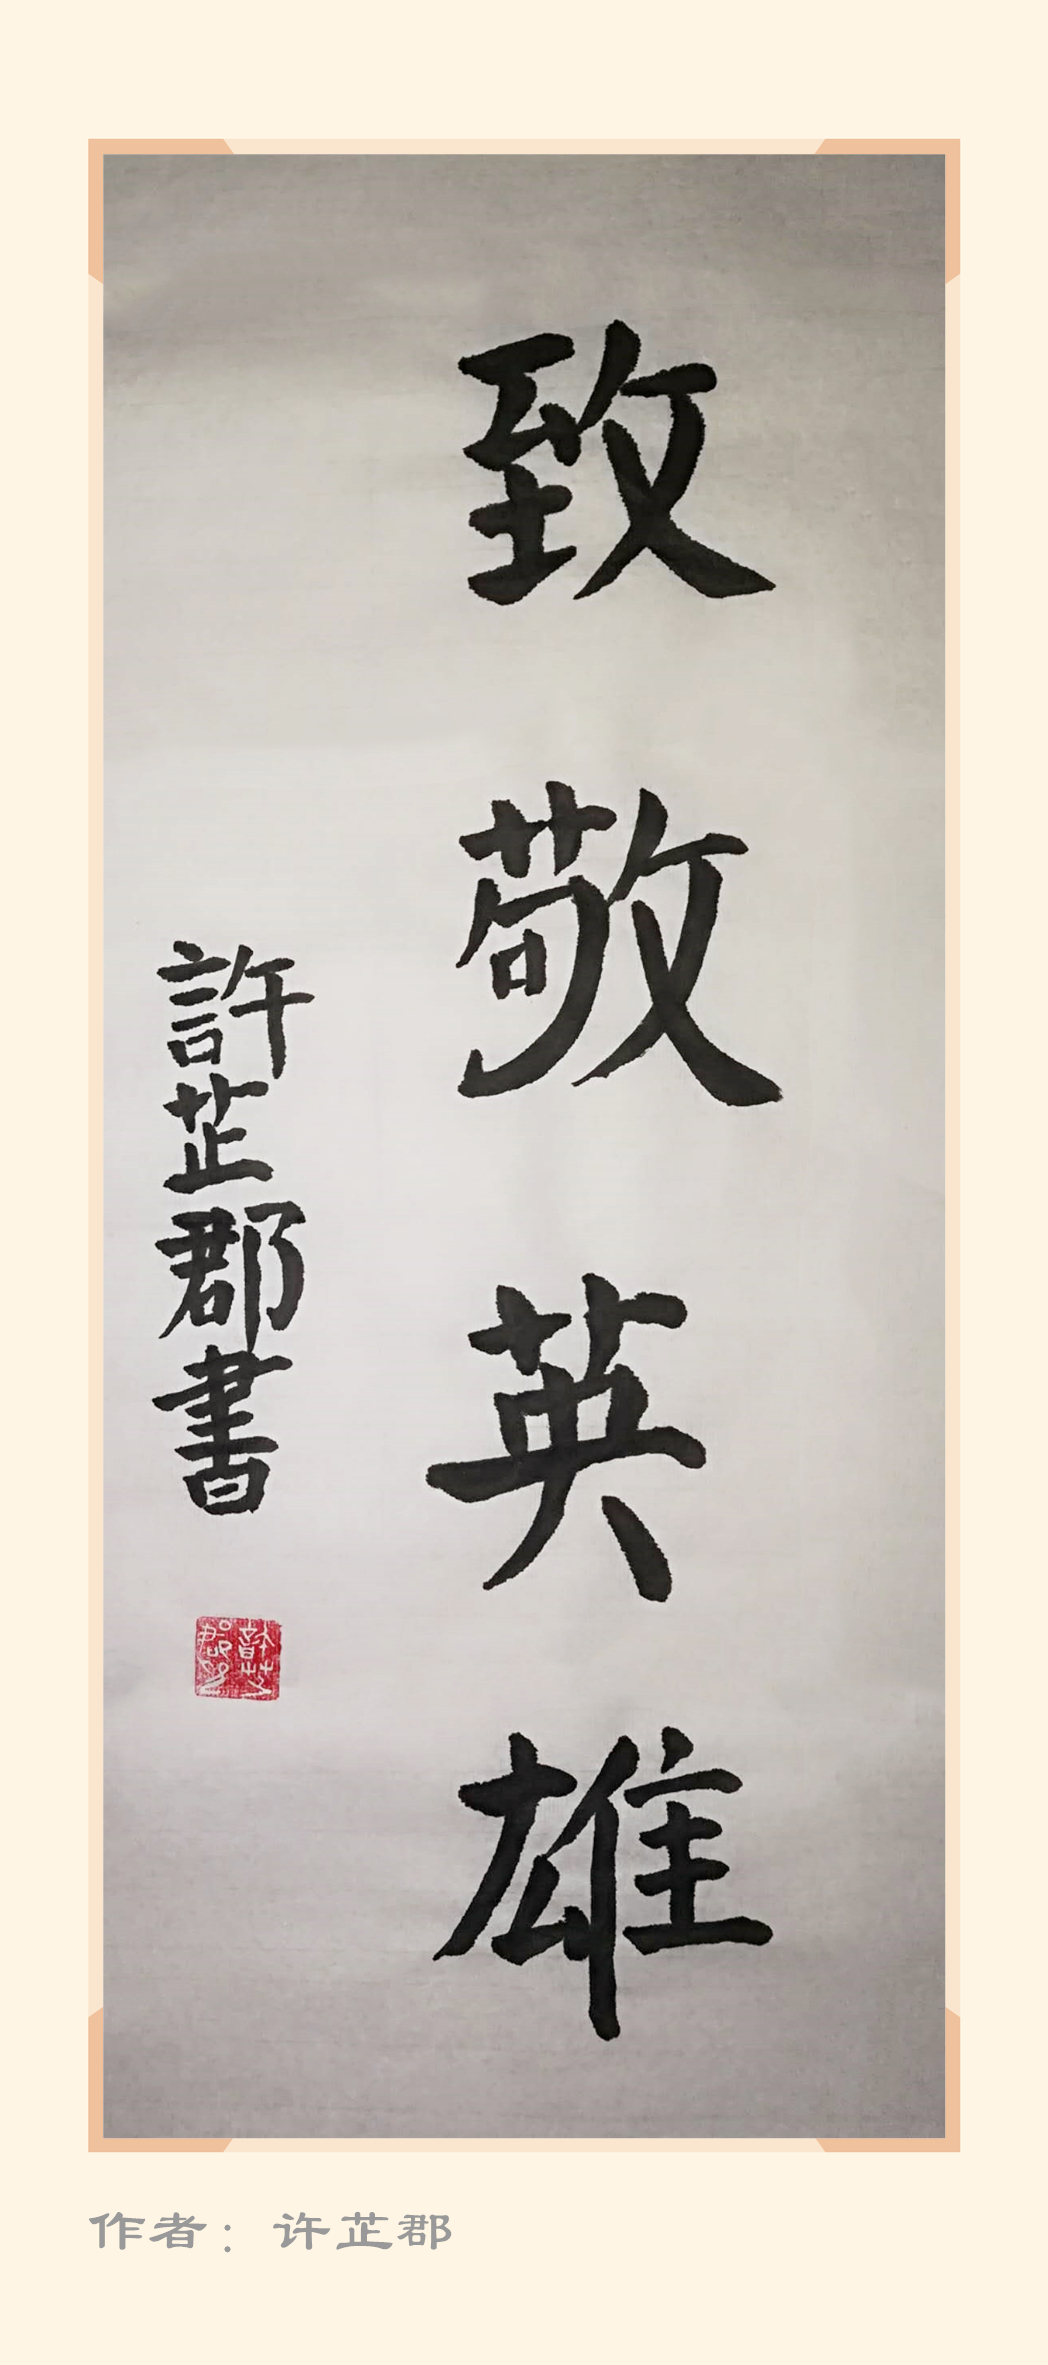 致敬英雄
許芷郡書
作者：许芷郡